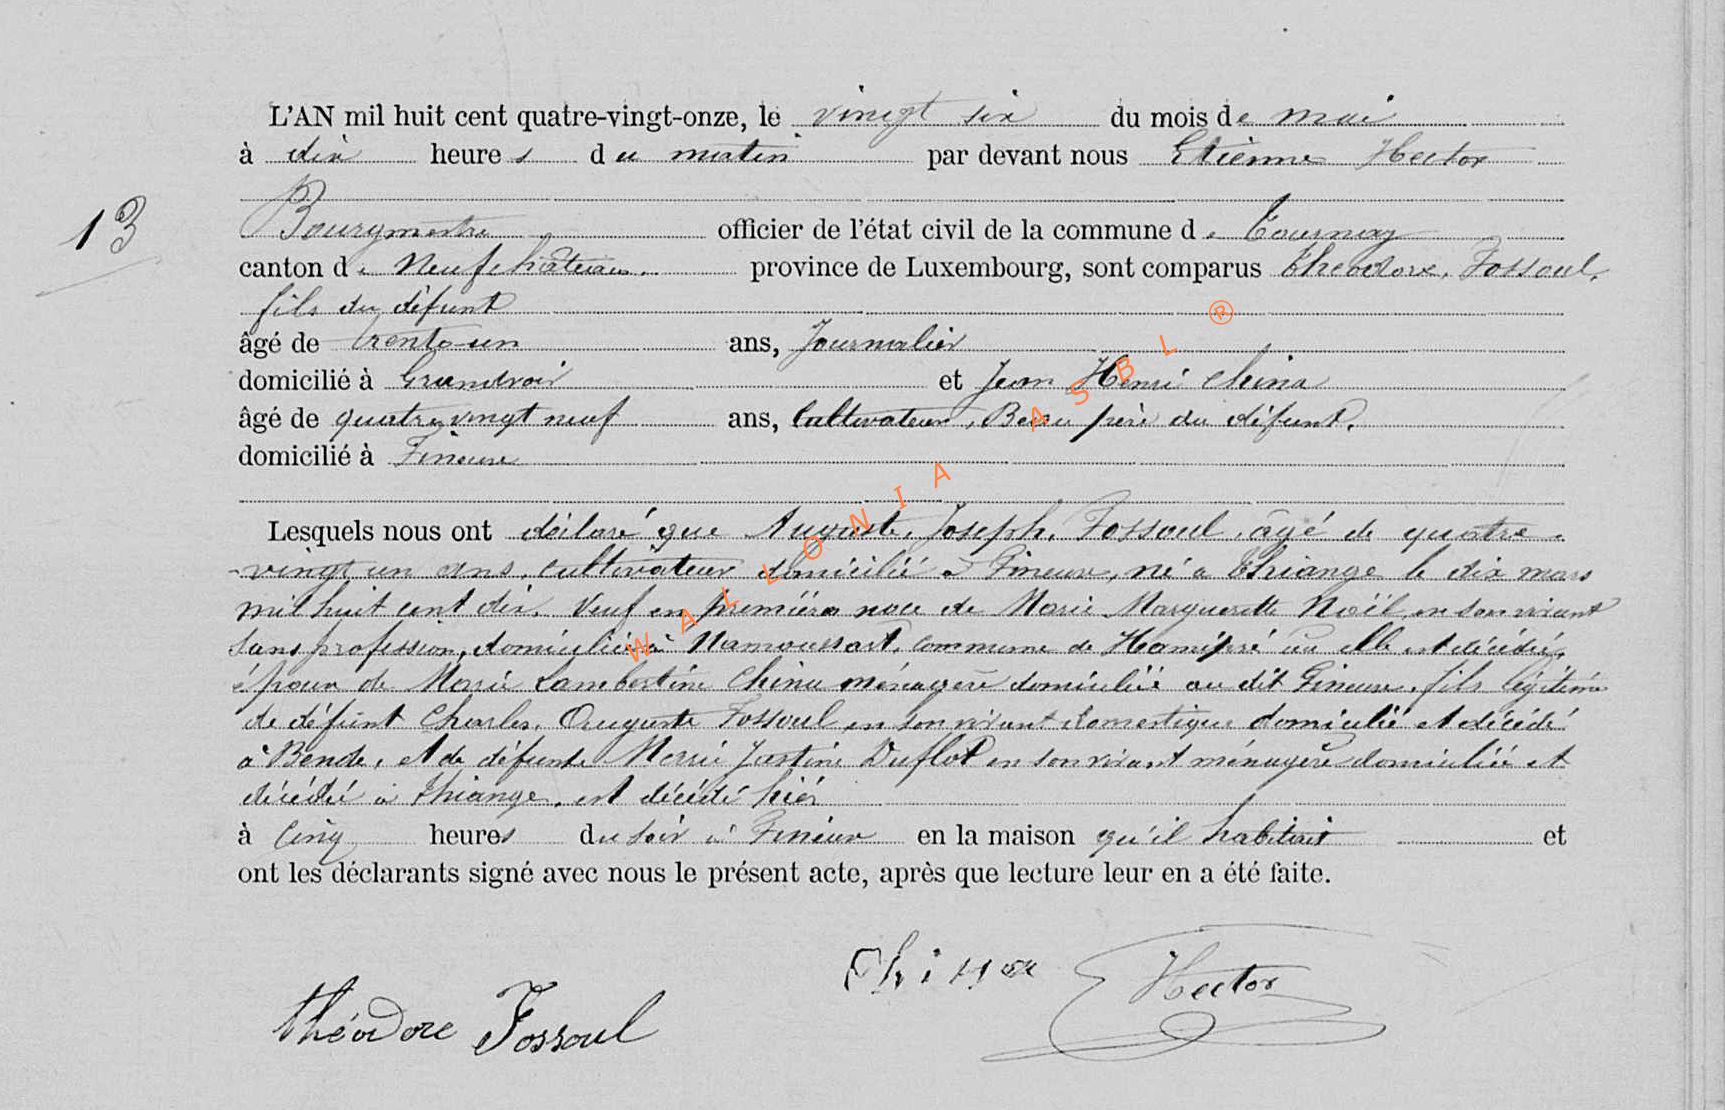 L'AN mil huit cent quatre-vingt-onze, le vingt six du mois de mai
à dix heures du matin par devant nous Etienne Hector
13
Bourgmestre officier de l'état civil de la commune de Tournay
canton de Neufchâteau. province de Luxembourg, sont comparus Theodore. Fossoul,
fils du défunt
âgé de trente-un ans, Journalier
domicilié à Grandvoir et Jean Henri China
âgé de quatre vingt neuf ans, Cultivateur, Beau père du défunt.
domicilié à Fineuse
Lesquels nous ont déclaré que Auguste. Joseph. Fossoul, âgé de quatre-
vingt un ans, cultivateur domicilié à Fineuse, né à Thiange le dix mars
mil huit cent dix. Veuf en première noce de Marie Marguerette Noël, en son vivant
sans profession, domiciliée à Namoussart, commune de Hamipré où elle est décédée,
époux de Marie Lambertine China ménagère domiciliée au dit Fineuse, fils légitime
de défunt Charles. Auguste Fossoul en son vivant domestique domicilié et décédé
à Bende, et de défunte Marie Justine Duflot en son vivant ménagère domiciliée et
décédée à thiange, est décédé hier
à cinq heures du soir à Fineuse en la maison qu'il habitait et
ont les déclarants signé avec nous le présent acte, après que lecture leur en a été faite.
China Hector
théodore Fossoul
WALLONIA ASBL ®